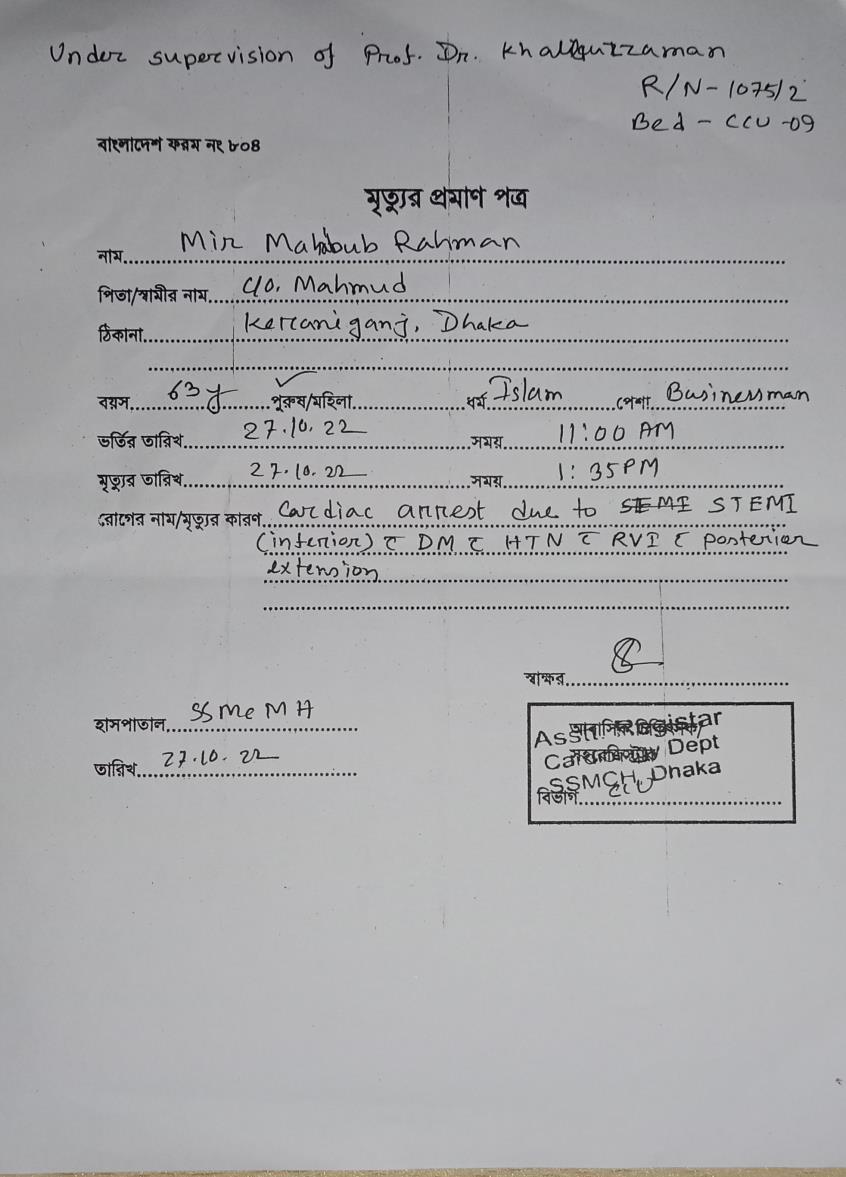 Under supervision of Prof. Dr. Khaliquzzaman
R/N - 1075/2
Bed - CCU -09
বাংলাদেশ ফরম নং ৮০৪
মৃত্যুর প্রমাণ পত্র
নাম Mir Mahabub Rahman
পিতা/স্বামীর নাম C/O. Mahmud
ঠিকানা Keraniganj, Dhaka
বয়স 63 y পুরুষ/মহিলা ধর্ম Islam পেশা Businessman
ভর্তির তারিখ 27.10.22 সময় 11:00 AM
মৃত্যুর তারিখ 27.10.22 সময় 1:35PM
রোগের নাম/মৃত্যুর কারণ Cardiac arrest due to STEMI
(inferior) c̄ DM c̄ HTN c̄ RVI c̄ posterior
extension
স্বাক্ষর
হাসপাতাল SSMCMH
তারিখ 27.10.22
Asstt. Registar
Dept
SSMCH, Dhaka
বিভাগ CCU